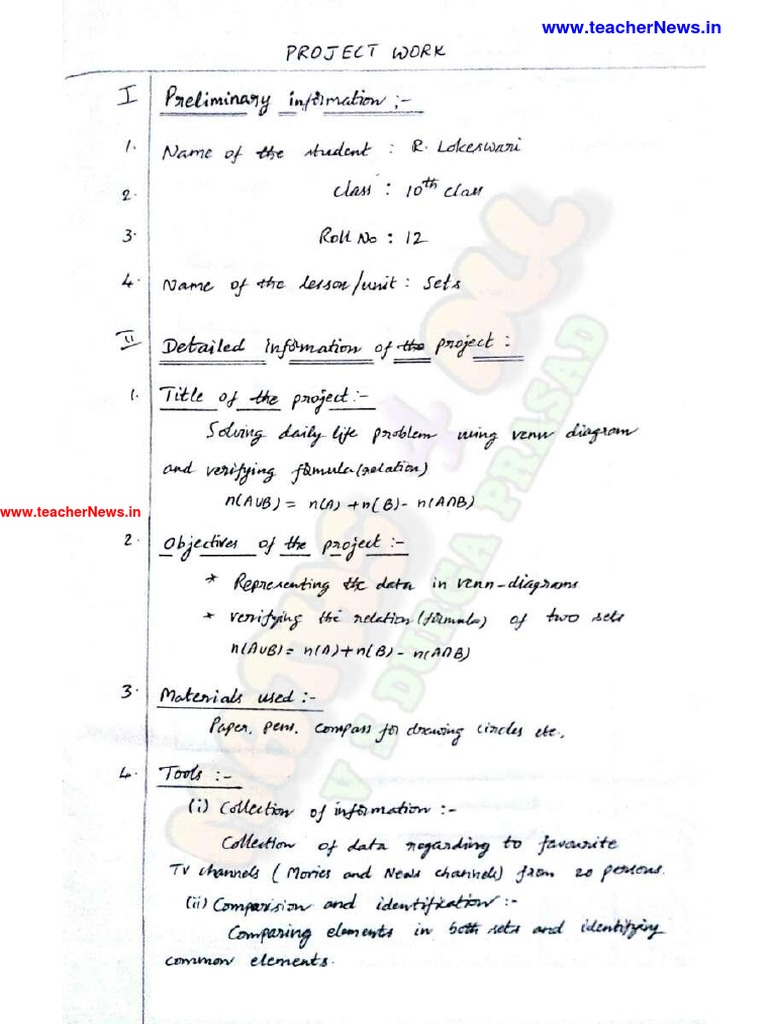 www.teacherNews.in
PROJECT WORK
I Preliminary information :-
1. Name of the student : R. Lokeswari
2. Class : 10th class
3. Roll No : 12
4. Name of the lesson/unit : Sets
II Detailed information of the project :
1. Title of the project :-
Solving daily life problem using venn diagram
and verifying formula (relation)
n(A∪B) = n(A) + n(B) - n(A∩B)
www.teacherNews.in
2. Objectives of the project :-
* Representing the data in venn-diagrams
* verifying the relation (formula) of two sets
n(A∪B) = n(A) + n(B) - n(A∩B)
3. Materials used :-
Paper, pens, compass for drawing circles etc.,
4. Tools :-
(i) Collection of information :-
Collection of data regarding to favourite
TV channels ( Movies and News channels) from 20 persons.
(ii) Comparision and identification :-
Comparing elements in both sets and identifying
common elements.
MATHS 4 ALL
V S DURGA PRASAD